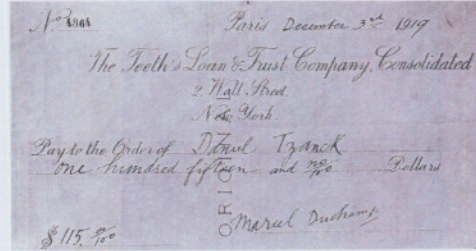 No 4864
Paris December 3rd 1919
The Teeth's Loan & Trust Company, Consolidated
2 Wall Street.
New York.
Pay to the Order of Daniel Tzanck
one hundred fifteen and no/100 Dollars
ORIGINAL
$ 115. no/100
Marcel Duchamp